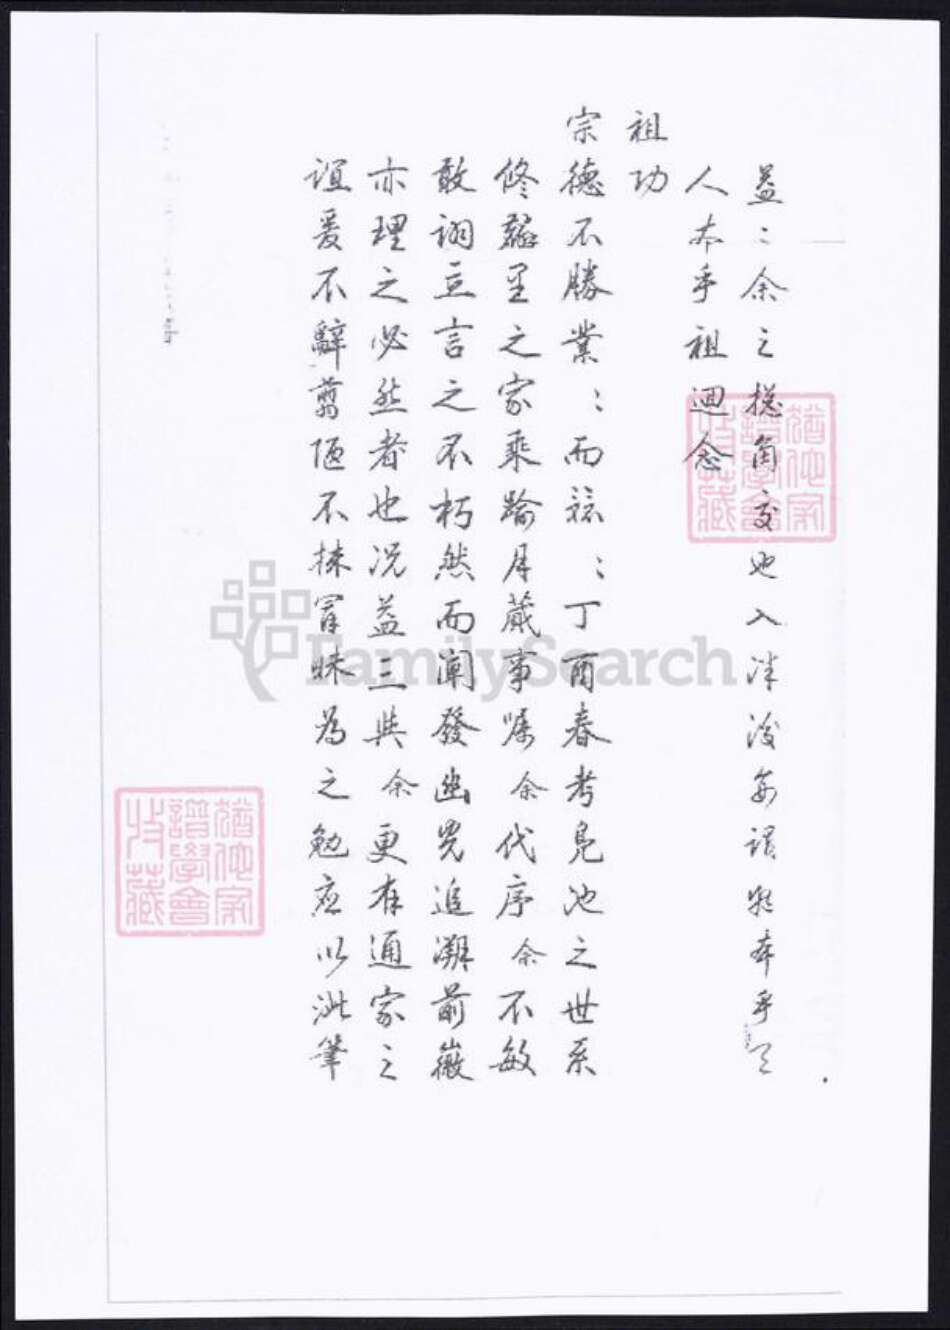 益：余之總角交也入泮後每謂物本乎天
人本乎祖迴念
祖功
宗德不勝業：而兢：丁酉春考見池之世系
修輯里之家乘踰月蕆事囑余代序余不敏
敢詡立言之不朽然而闡發幽光追溯前徽
亦理之必然者也況益三與余更有通家之
誼爰不辭翦陋不揣冒昧為之勉應以泚筆
FamilySearch
譜學會
收藏